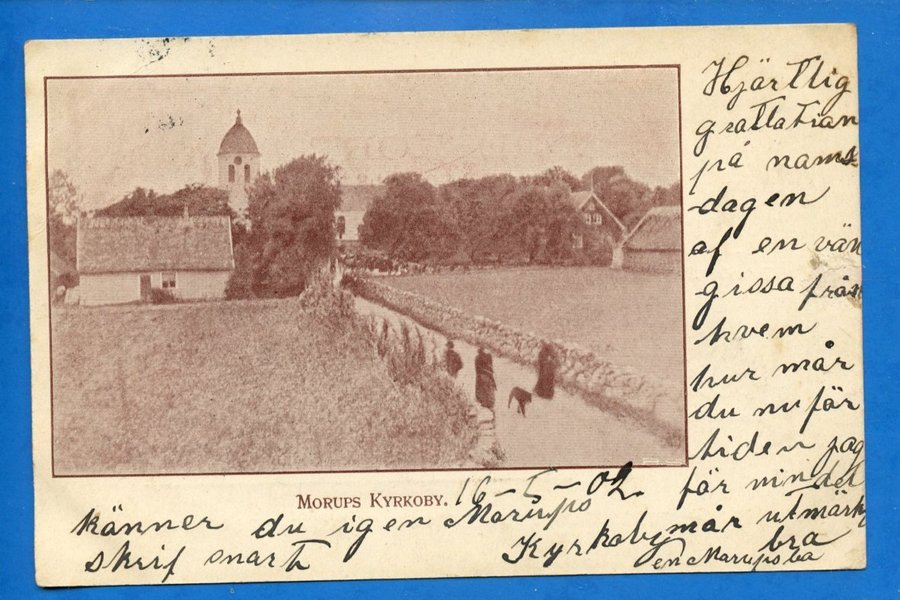 Hjärtlig
grattatian
på nams-
dagen
af en vän
gissa från
hvem
hur mår
du nu för
tiden jag
för min del
mår utmärkt
bra
en Marupsbo
MORUPS KYRKOBY.
16-5-02.
känner du igen Morups
Kyrkoby
skrif snart